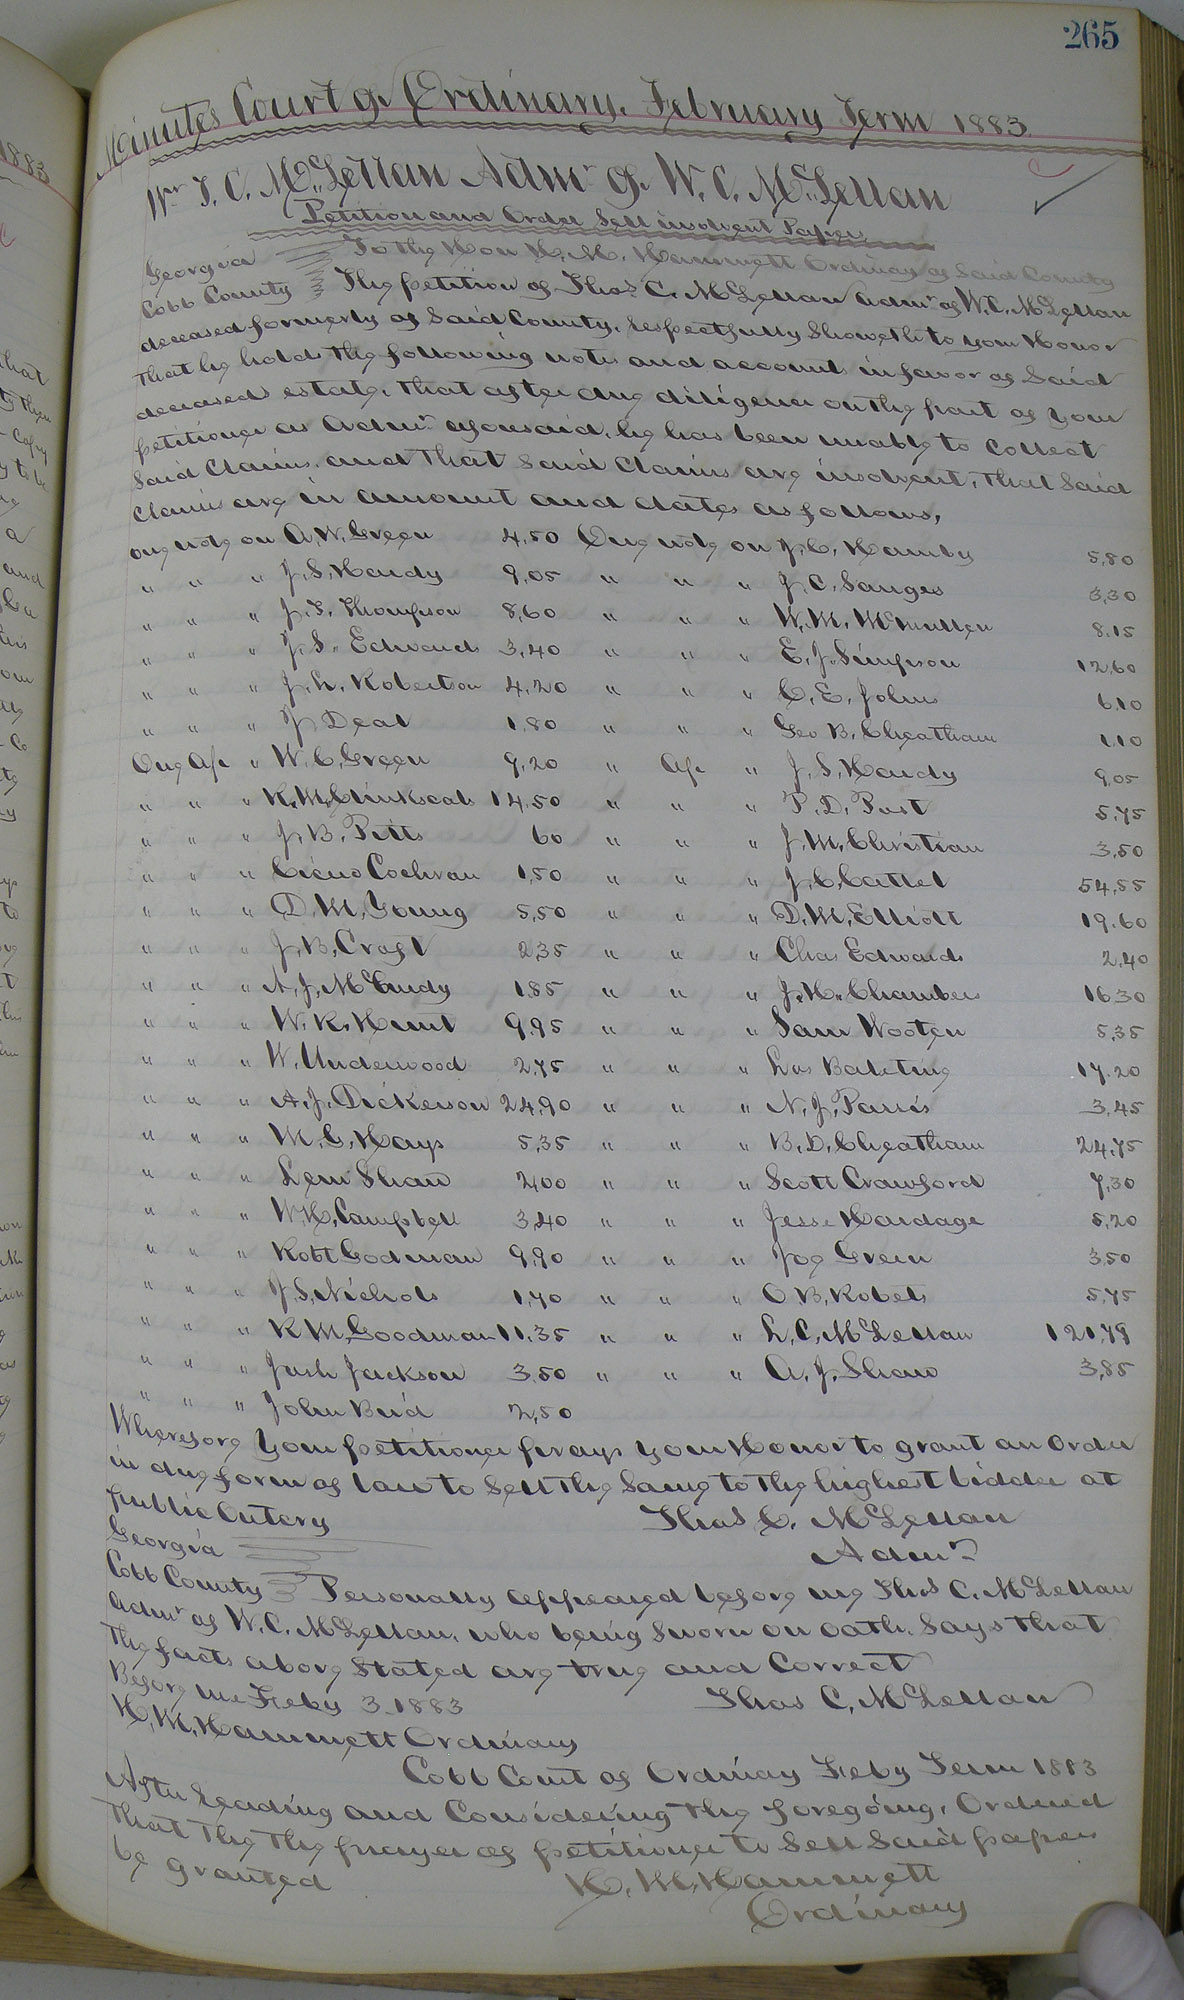 265
Minutes Court of Ordinary, February Term 1883
T. C. McLellan Admr of W. C. McLellan
Petition and Order Sell insolvent Papers
Georgia To the Hon H. M. Hammett Ordinary of Said County
Cobb County The petition of Thos C. McLellan Admr of W. C. McLellan
deceased formerly of Said County, respectfully Showeth to your Honor
that he holds the following notes and accounts in favor of Said
deceased estate, that after due diligence on the part of your
petitioner as Admr aforesaid, he has been unable to Collect
Said Claims, and that Said Claims are insolvent, that Said
Claims are in amount and dates as follows,
One note on A. W. Green 4,50 One note on J. C. Hamby 5,80
" " " J. S. Hardy 9,05 " " " J. C. Sanges 3,30
" " " J. T. Thompson 8,60 " " " W. M. McMullen 8,15
" " " J. S. Edwards 3,40 " " " E. J. Simpson 12,60
" " " J. L. Robertson 4,20 " " " C. E. Johns 6,10
" " " J. Deal 1,80 " " " Geo B. Cheatham 1,10
One a/c " W. C. Green 9,20 " a/c " J. S. Hardy 9,05
" " " R. M. Clinkscals 14,50 " " " P. D. Post 5,75
" " " J. B. Pitts 60 " " " J. M. Christian 3,50
" " " Cochran 1,50 " " " J. C. Cattel 54,55
" " " D. M. Young 5,50 " " " D. M. Elliott 19,60
" " " J. B. 2,35 " " " Chas Edwards 2,40
" " " A. J. McCurdy 1,85 " " " J. H. Chambers 16,30
" " " W. R. Hunt 9,95 " " " Sam Wooten 5,35
" " " W. Underwood 2,75 " " " 17,20
" " " A. J. Dickerson 24,90 " " " N. J. Parris 3,45
" " " M. G. Hays 5,35 " " " B. D. Cheatham 24,75
" " " Lem Shaw 2,00 " " " Scott Crawford 7,30
" " " W. H. Campbell 3,40 " " " Jesse Hardage 5,20
" " " Robt Godman 9,90 " " " Joe Green 3,50
" " " J. S. Nichols 1,70 " " " O. B. Robets 5,75
" " " R. M. Goodman 11,35 " " " L. C. McLellan 121,79
" " " Jack Jackson 3,50 " " " A. J. Shaw 3,85
" " " John Bird 2,50
Wherefore Your petitioner prays your Honor to grant an Order
in due form of law to Sell the Same to the highest bidder at
public Outcry Thos C. McLellan
Georgia Admr
Cobb County Personally appeared before me Thos C. McLellan
Admr of W. C. McLellan, who being Sworn on oath, Says that
the facts above Stated are true and Correct
Before me Feby 3 1883 Thos C. McLellan
H. M. Hammett Ordinary
Cobb Court of Ordinary Feby Term 1883
After Reading and Considering the foregoing, Ordered
that the the prayer of petitioner to Sell Said papers
be granted H. M. Hammett
Ordinary